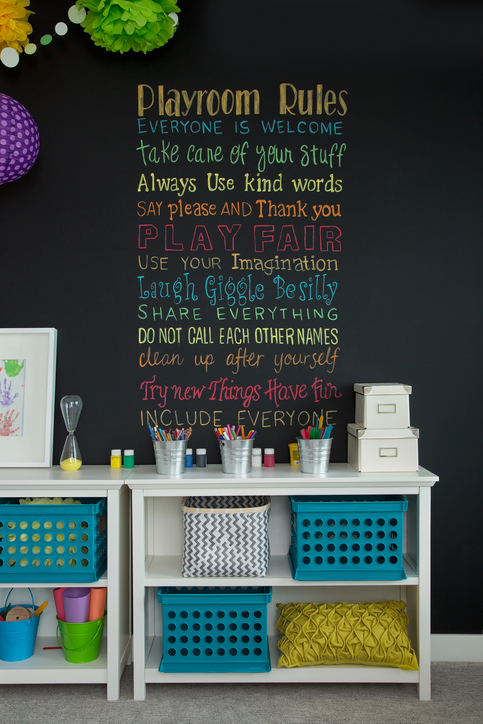 Playroom Rules
EVERYONE IS WELCOME
take care of your stuff
Always Use kind words
SAY please AND Thank you
PLAY FAIR
USE YOUR Imagination
Laugh Giggle Be silly
SHARE EVERYTHING
DO NOT CALL EACH OTHER NAMES
clean up after yourself
Try new Things Have fun
INCLUDE EVERYONE